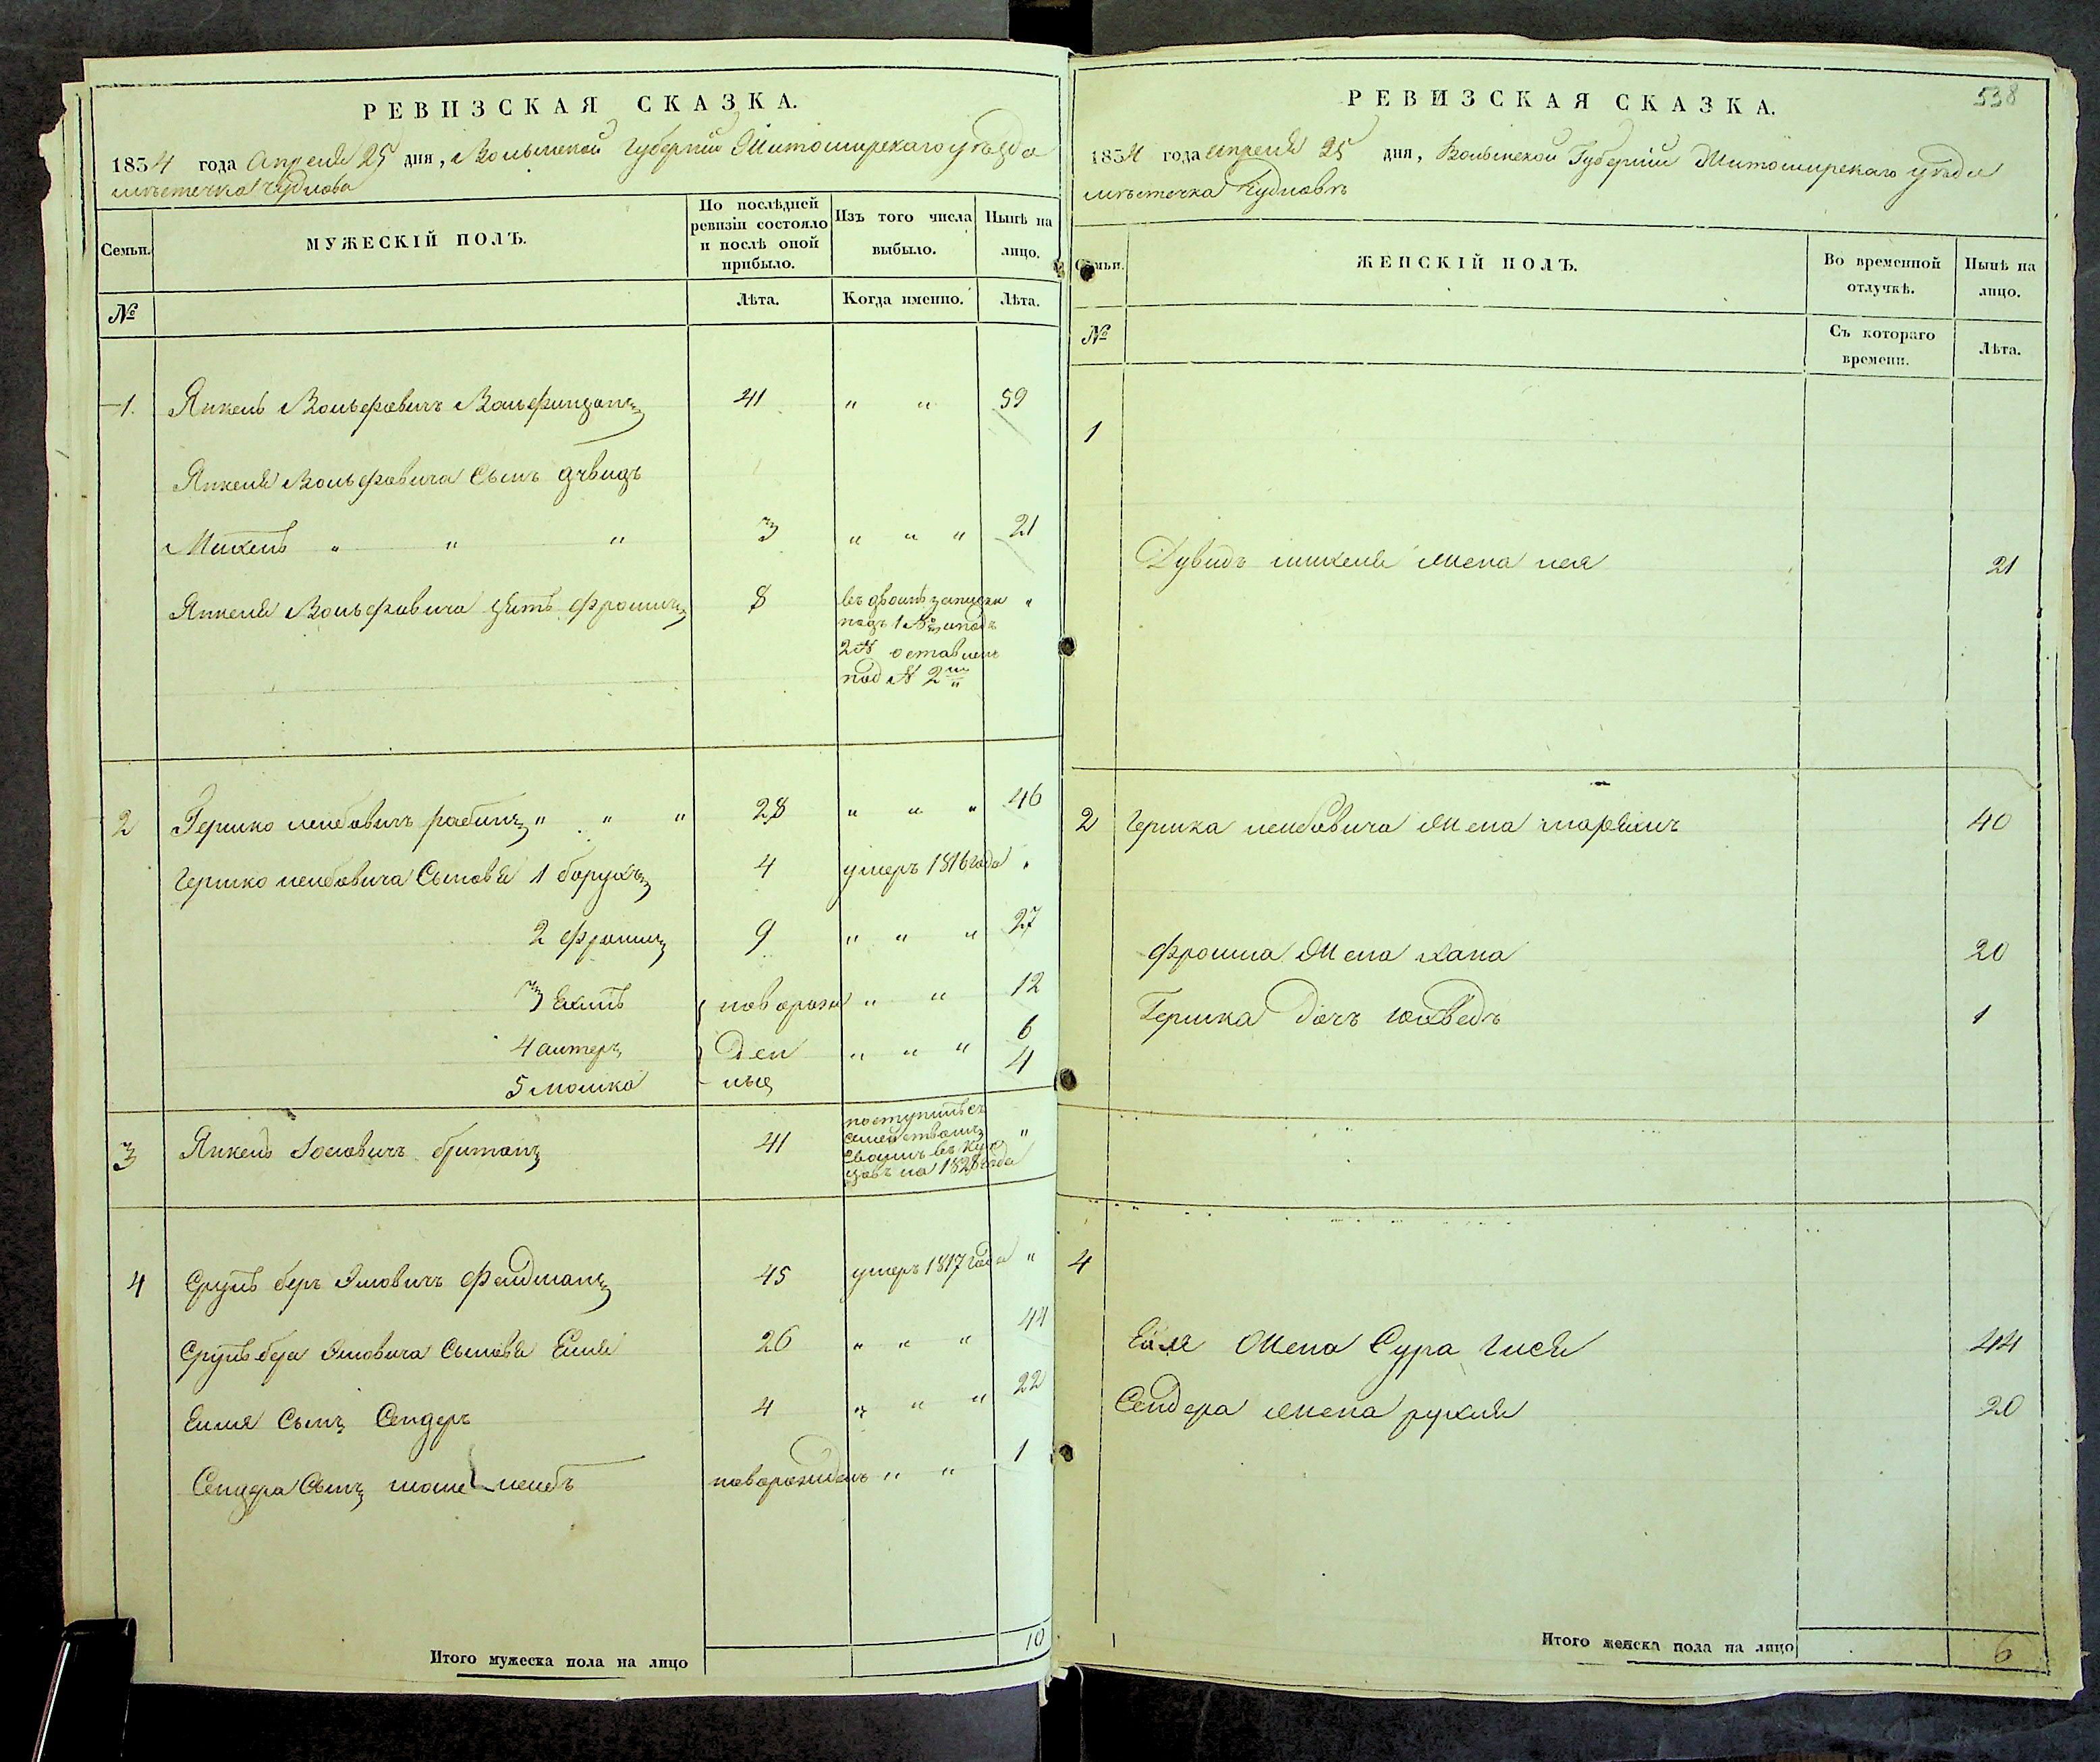 РЕВИЗСКАЯ СКАЗКА.
1834 года Апреля 25 дня, Волынской Губернiи Житомирскаго уѣзда
мѣстечка Чуднова
Семьи.
МУЖЕСКIЙ ПОЛЪ.
По послѣдней ревизiи состояло и послѣ оной прибыло.
Изъ того числа выбыло.
Нынѣ на лицо.
№
Лѣта.
Когда именно.
Лѣта.
1. Янкель Вольфовичъ 41 " " 59
Янкеля Вольфовича Сынъ дувидъ
Михель " " " 3 " " " 21
Янкеля Вольфовича зять фроимъ 8 въ двойнѣ записанъ "
подъ 1 № и подъ
2 № оставленъ
под № 2мъ
2 Гершко лейбовичъ рабинъ " " " 28 " " " 46
Гершко лейбовича Сыновья 1 борухъ 4 умеръ 1816 года "
2 фроимъ 9 " " " 27
3 Ехиль новорож " " 12
4 ден " " " 6
5 мошко ные 4
3 Янкель Iосиовичъ британъ 41 поступилъ съ "
семействомъ
Своимъ въ Куп
цовъ на 1828 года
4 Сруль беръ фельдманъ 45 умеръ 1817 года "
Сруль бера Сыновья Еиля 26 " " " 44
Еиля Сынъ Сендеръ 4 " " " 22
Сендера Сынъ лейбъ новорожденъ " " 1
Итого мужеска пола на лицо 10
РЕВИЗСКАЯ СКАЗКА.
538
1834 года апреля 25 дня, Волынской Губернiи Житомирскаго уѣзда
мѣстечка Чудновъ
Семьи.
ЖЕНСКIЙ ПОЛЪ.
Во временной отлучкѣ.
Нынѣ на лицо.
№
Съ котораго времени.
Лѣта.
1
Дувидъ михеля жена лея 21
2 Гершка лейбовича жена 40
Фроима жена хана 20
Гершка дочь юхведъ 1
4
Еиля жена Сура гися 44
Сендера жена рухля 20
Итого женска пола на лицо 6